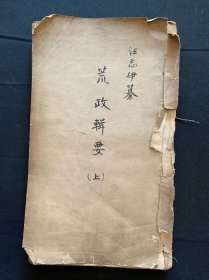 汪志伊纂
荒政輯要
(上)